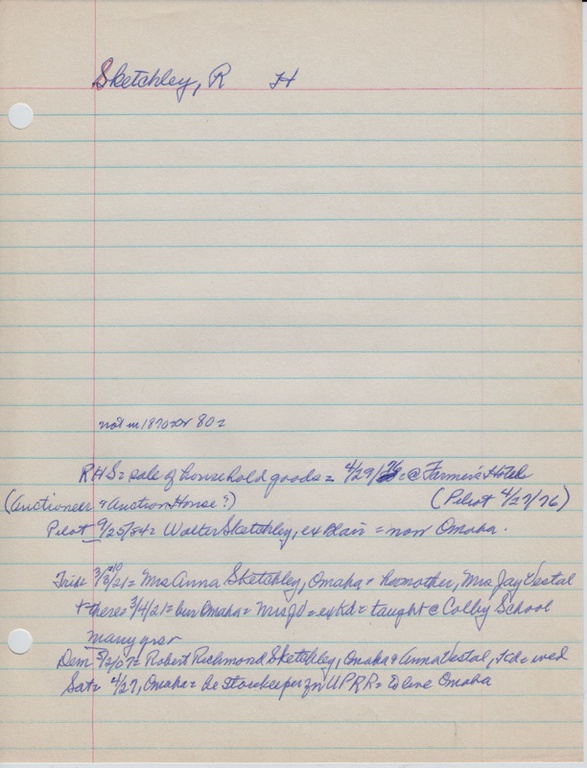 Sketchley, R H
not in 1870 or 80=
RHS= sale of household goods= 4/29/76= @ Farmer's Hotel
(Auctioneer & Auction House?) (Pilot 4/27/76)
Pilot 9/25/84= Walter Sketchley, ex Blair = now Omaha.
Trib= 3/8/21= Mrs Anna Sketchley, Omaha & her mother, Mrs Jay Vestal
& there= 3/4/21= bur Omaha= Mrs JV= ex Kd= taught @ Colby School
many yrs
Dem 5/2/07= Robert Richmond Sketchley, Omaha & Anna Vestal, Kd= wed
Sat= 4/27, Omaha= he storekeeper for UPRR= to live Omaha